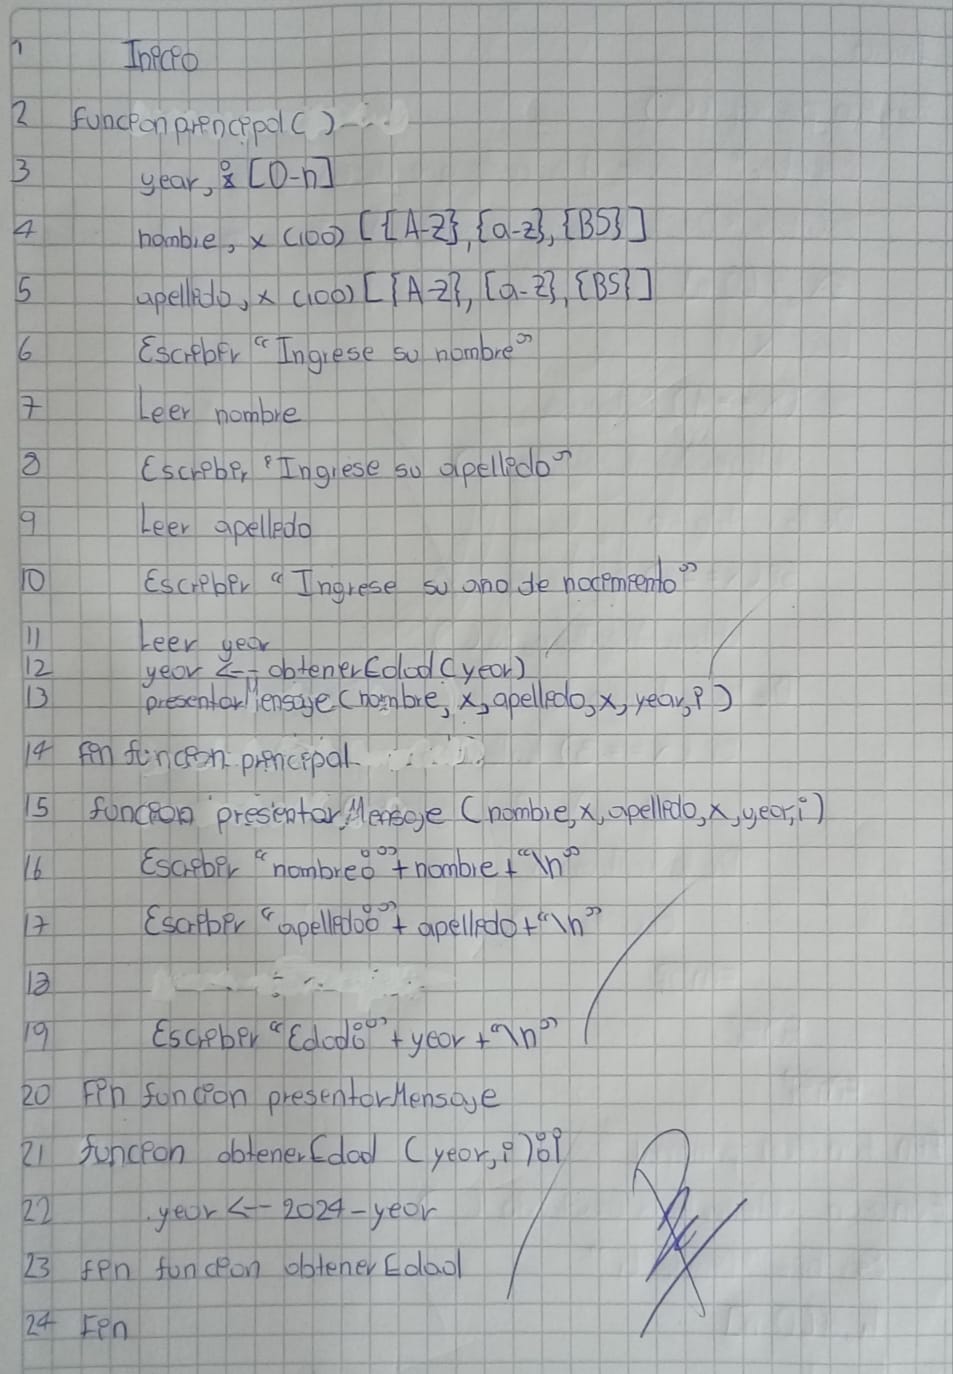 1 Inicio
2 funcion principal ( )
3 year, i [0-n]
4 nombre, x (100) [{A-Z}, {a-z}, {BS}]
5 apellido, x (100) [{A-Z}, {a-z}, {BS}]
6 Escribir "Ingrese su nombre"
7 Leer nombre
8 Escribir "Ingrese su apellido"
9 Leer apellido
10 Escribir "Ingrese su ano de nacimiento"
11 Leer year
12 year <-- obtenerEdad (year)
13 presentarMensaje (nombre, x, apellido, x, year, i)
14 fin funcion principal
15 funcion presentarMensaje (nombre, x, apellido, x, year, i)
16 Escribir "nombre:" + nombre + "\n"
17 Escribir "apellido:" + apellido + "\n"
18
19 Escribir "Edad:" + year + "\n"
20 Fin funcion presentarMensaje
21 funcion obtenerEdad (year, i):i
22 year <-- 2024 - year
23 fin funcion obtenerEdad
24 Fin